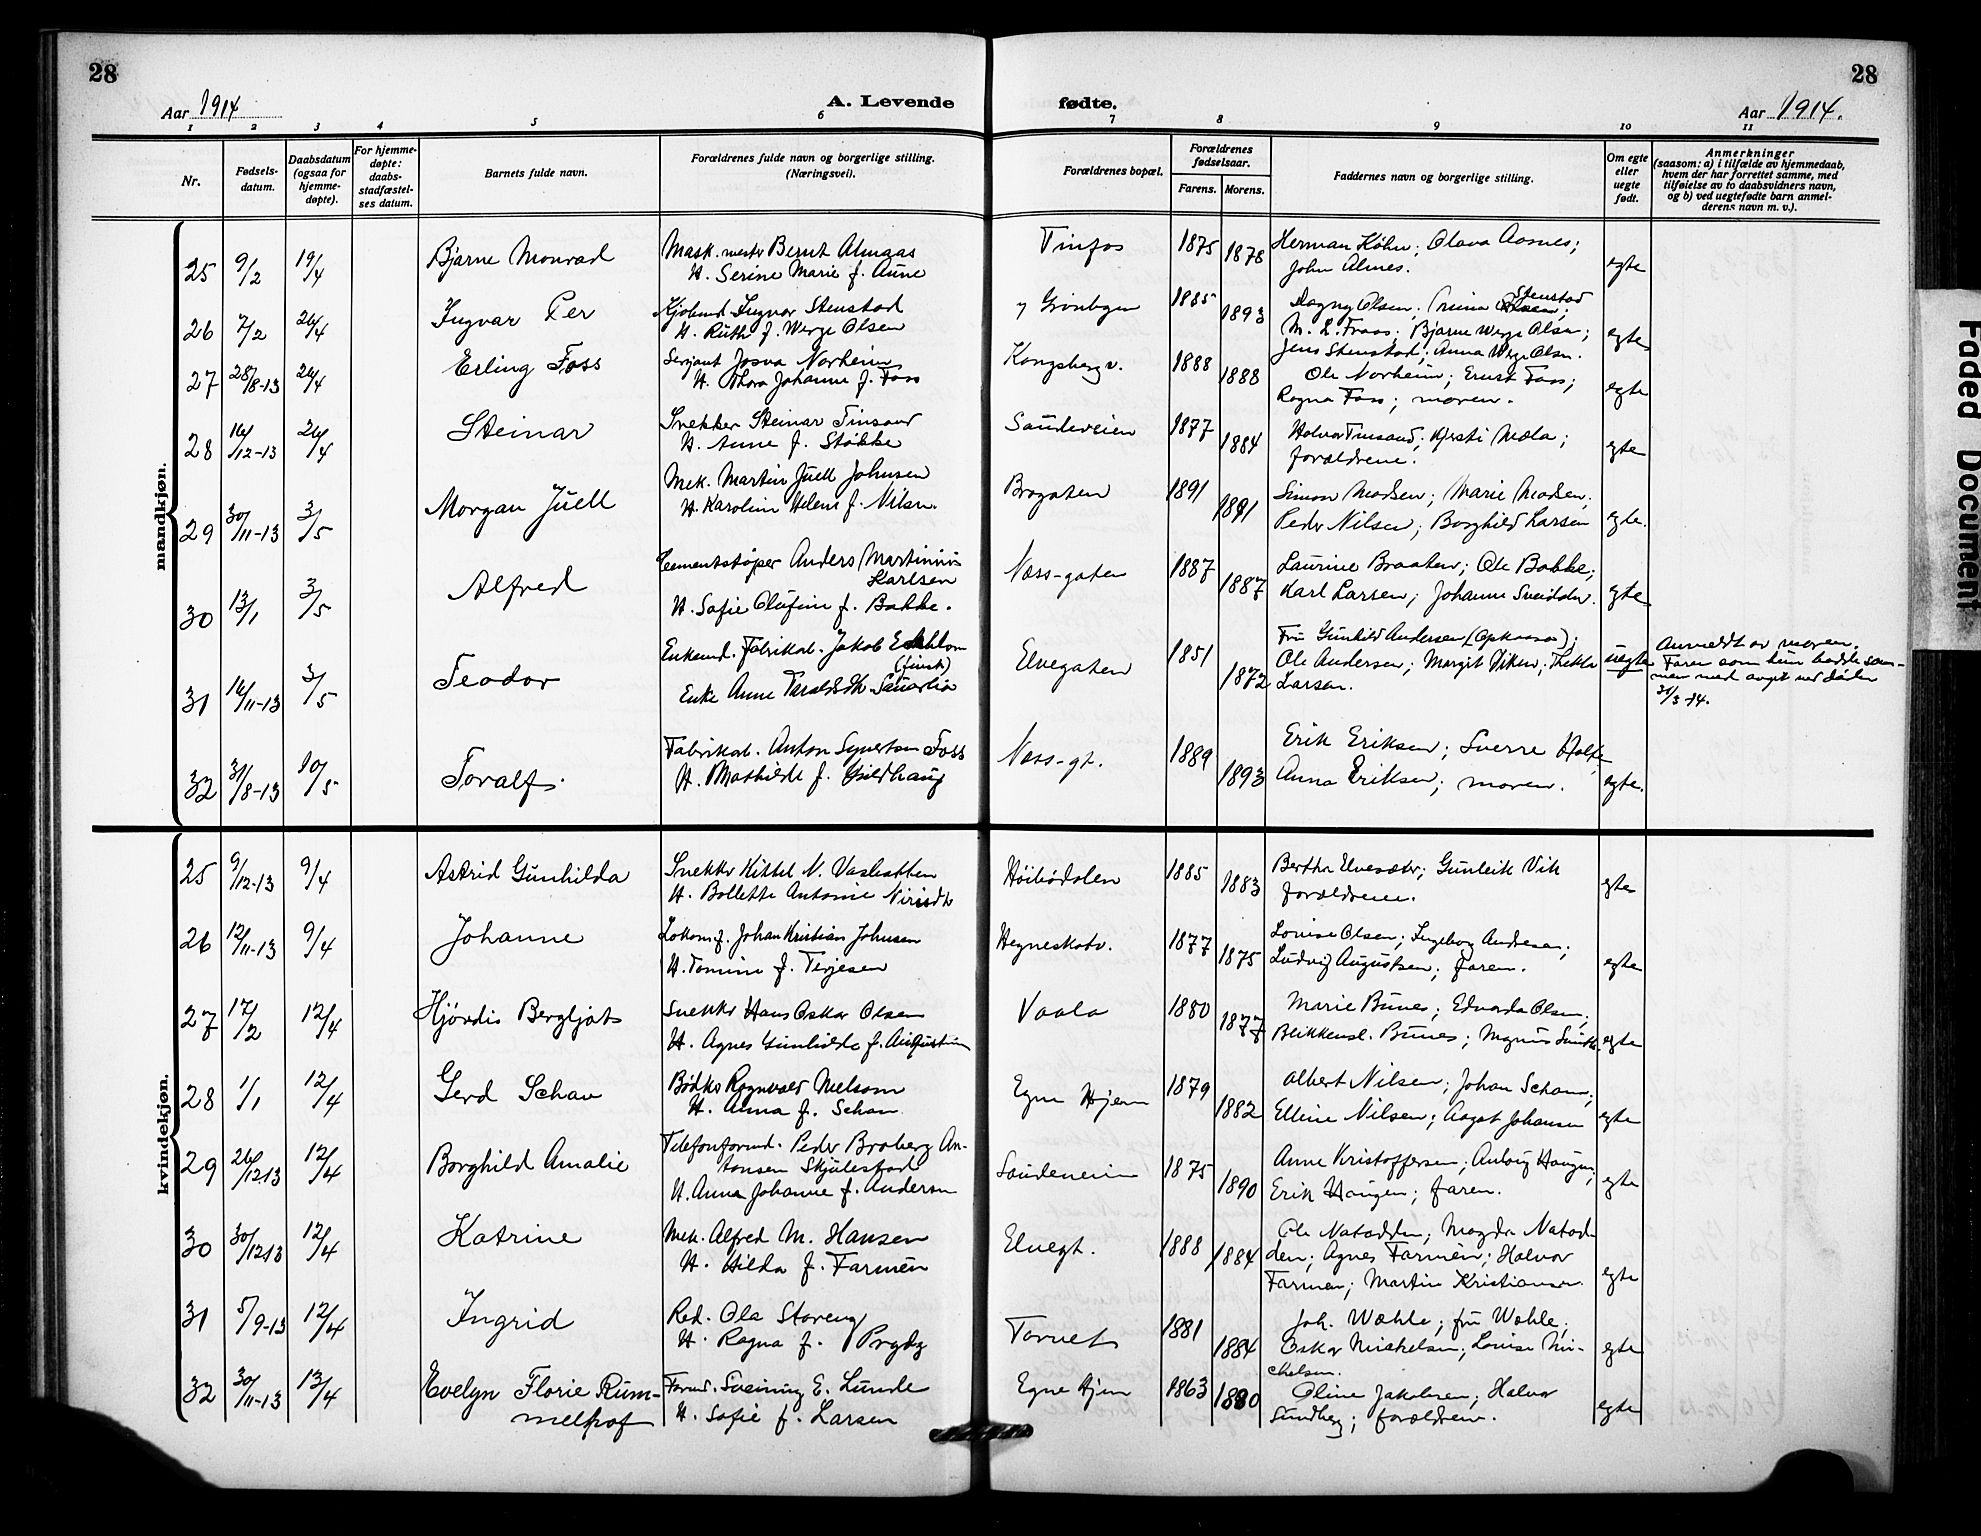 28
28
Aar 1914
A. Levende
fødte.
Aar 1914.
1 2 3 4 5 6 7 8 9 10 11
Nr.
Fødsels-
datum.
Daabsdatum
(ogsaa for
hjemme-
døpte).
For hjemme-
døpte:
daabs-
stadfæstel-
ses datum.
Barnets fulde navn.
Forældrenes fulde navn og borgerlige stilling.
(Næringsvei).
Forældrenes bopæl.
Forældrenes
fødselsaar.
Farens. Morens.
Faddernes navn og borgerlige stilling.
Om egte
eller
uegte
født.
Anmerkninger
(saasom: a) i tilfælde av hjemmedaab,
hvem der har forrettet samme, med
tilføielse av to daabsvidners navn,
og b) ved uegtefødte barn anmel-
derens navn m. v.).
mandkjøn.
25 9/2 19/4 Bjarne Monrad
Mask.mester Bernt Almaas
H. Serine Marie f. Aune
Tinfos 1875 1878
Herman Köhn; Olava Aasnes;
John Almes.
egte
26 7/2 26/4 Ingvar Per
Ingvar Stenstad
H. Ruth f. Werge Olsen
Grønbyen 1885 1893
Dagny Olsen; Stenstad
M. L. Fraas; Bjarne Werge Olsen;
Jens Stenstad; Anna Werge Olsen.
egte
27 28/8-13 26/4 Erling Foss
Serjant Josva Norheim
H. Thora Johanne f. Foss
Kongsbergv. 1888 1888
Ole Norheim; Ernst Foss;
Ragna Foss; moren.
egte
28 16/12-13 26/4 Steinar
Snekker Steinar Tinsand
H. Anne f. Støkke
Saudeveien 1877 1884
Halvor Tinsand; Kjersti Mæla;
forældrene.
egte
29 30/11-13 3/5 Morgan Juell
Mek. Martin Juell Johnsen
H. Karoline Helene f. Nilsen.
Brogaten 1891 1891
Simon Madsen; Marie Madsen;
Peder Nilsen; Borghild Larsen
egte.
30 13/1 3/5 Alfred
Cementstøper Anders Martinius
Karlsen
H. Sofie Olufine f. Bakke.
Næss-gaten 1887 1887
Laurine Braaten; Ole Bakke;
Karl Larsen; Johanne
egte
31 16/11-13 3/5 Teodor
Enkemd. Fabrikarb. Jakob Ekblom
(finsk)
Enke Anne Taraldsdtr. Sauarlia
Elvegaten 1851 1872
Fru Gunhild Andersen (Opkaasa);
Ole Andersen; Margit Viken; Thekla
Larsen.
uegte
Anmeldt av moren.
Faren som hun bodde sam-
men med avgik ved døden
31/3-14.
32 31/8-13 10/5 Toralf.
Fabrikarb. Anton Syvertsen Foss
H. Mathilde f. Gildhaug
Næss-gt. 1889 1893
Erik Eriksen; Sverre Holte;
Anna Eriksen; moren.
egte.
kvindekjøn.
25 9/12-13 9/4 Astrid Gunhilda
Snekker Kittel N. Vasbotten
H. Bollette Antonie
Høibødalen 1885 1883
Bertha Elvesæter; Gunleik Vik
forældrene.
egte
26 12/11-13 9/4 Johanne
Lokomf. Johan Kristian Johnsen
H. Tomine f. Terjesen
Hegneskotv. 1877 1875
Louise Olsen; Ingeborg Andresen;
Ludvig Augustsen; faren.
egte
27 17/2 12/4 Hjørdis Bergljot
Snekker Hans Oskar Olsen
H. Agnes Gunhilde f. Augustin
Vaala 1880 1877
Marie Bunes; Edvarda Olsen;
Blikkensl. Bunes; Magnus
egte
28 1/1 12/4 Gerd Schau
Bødker Ragnvald Nielsom
H. Anna f. Schau.
Egne Hjem 1879 1882
Albert Nilsen; Johan Schau;
Elleine Nilsen; Aagot Johansen
egte
29 26/12 13 12/4 Borghild Amalie
Telefonformd. Peder Broberg An-
tonsen Skjulestad
H. Anna Johanne f. Andersen
Saudeveien 1875 1890
Anne Kristoffersen; Anborg Haugen;
Erik Haugen; faren.
egte
30 30/12 13 12/4 Katrine
Mek. Alfred M. Hansen
H. Hilda f. Farmen
Elvegt. 1888 1884
Ole Natadden; Magda Natad-
den; Agnes Farmen; Halvor
Farmen; Martin Kristiansen.
egte
31 5/9-13 12/4 Ingrid
Red. Ola Storeng
H. Ragna f. Prydz
Torvet 1881 1884
Joh. Wæhle; fru Wæhle;
Oskar Mickelsen; Louise Mi-
ckelsen.
egte
32 30/11-13 13/4 Evelyn Florie Rum-
melhof
Formd. Sveinung E. Lunde
H. Sofie f. Larsen
Egne Hjem 1863 1880
Oline Jakobsen; Halvor
Sundberg; forældrene.
egte
Faded Document